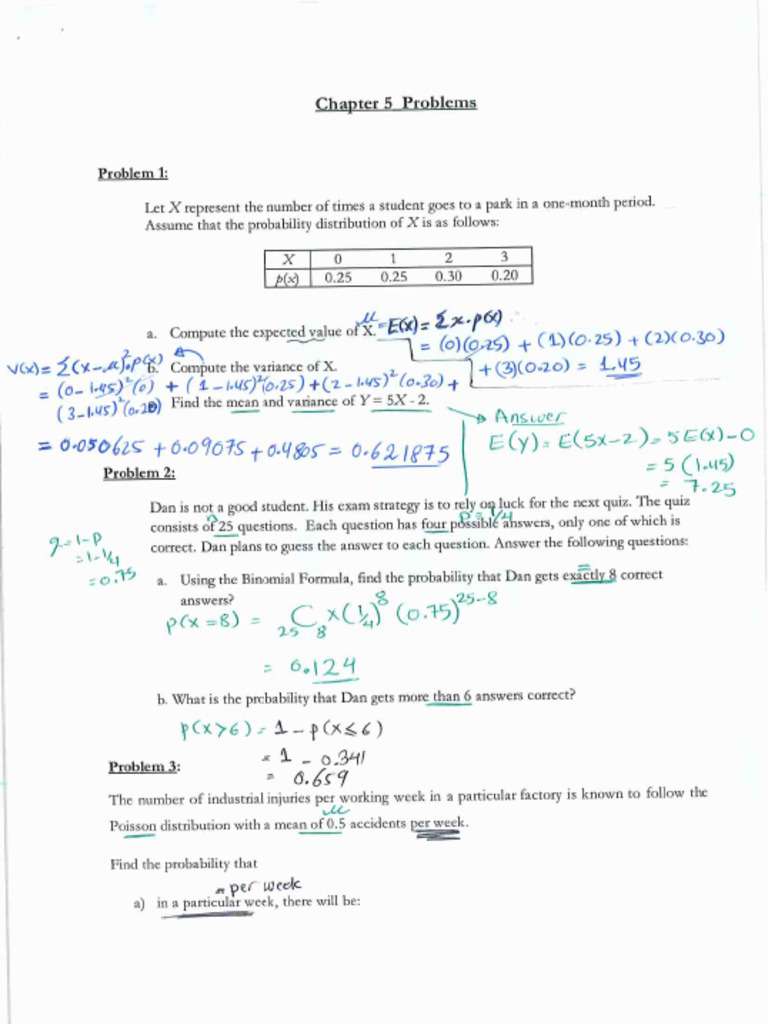 Chapter 5 Problems
Problem 1:
Let X represent the number of times a student goes to a park in a one-month period.
Assume that the probability distribution of X is as follows:
X 0 1 2 3
p(x) 0.25 0.25 0.30 0.20
a. Compute the expected value of X.
μ = E(x) = Σx.p(x)
= (0)(0.25) + (1)(0.25) + (2)(0.30)
+ (3)(0.20) = 1.45
b. Compute the variance of X.
V(x) = Σ(x-μ)².p(x)
= (0-1.45)²(0) + (1-1.45)²(0.25) + (2-1.45)²(0.30) +
(3-1.45)²(0.20)
Find the mean and variance of Y = 5X - 2.
= 0.050625 + 0.09075 + 0.4805 = 0.621875
Answer
E(y) = E(5x-2) = 5E(x)-0
= 5(1.45)
= 7.25
Problem 2:
Dan is not a good student. His exam strategy is to rely on luck for the next quiz. The quiz
n p = 1/4
consists of 25 questions. Each question has four possible answers, only one of which is
correct. Dan plans to guess the answer to each question. Answer the following questions:
q = 1-P
= 1-1/4
= 0.75
a. Using the Binomial Formula, find the probability that Dan gets exactly 8 correct
=
answers?
p(x=8) = 25C8 x (1/4)^8 (0.75)^25-8
= 0.124
b. What is the probability that Dan gets more than 6 answers correct?
p(x>6) = 1 - p(x≤6)
= 1 - 0.341
= 0.659
Problem 3:
The number of industrial injuries per working week in a particular factory is known to follow the
μ
Poisson distribution with a mean of 0.5 accidents per week.
Find the probability that
per week
a) in a particular week, there will be: